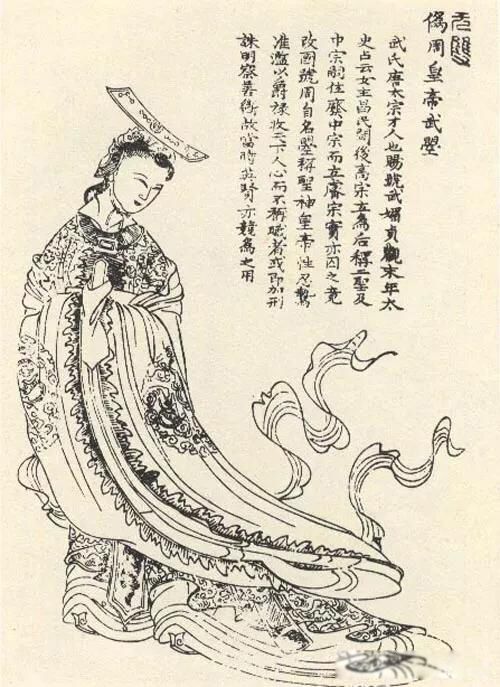 无雙
偽周皇帝武曌
武氏唐太宗才人也賜號武媚貞觀末年太
史占云女主昌民間後高宗立為后稱二聖及
中宗嗣位廢中宗而立睿宗實亦囚之竟
改國號周自名曌稱聖神皇帝性忍鷙
准濫以爵祿收天下人心而不稱職者或即加刑
誅明察善故當時英賢亦競為之用